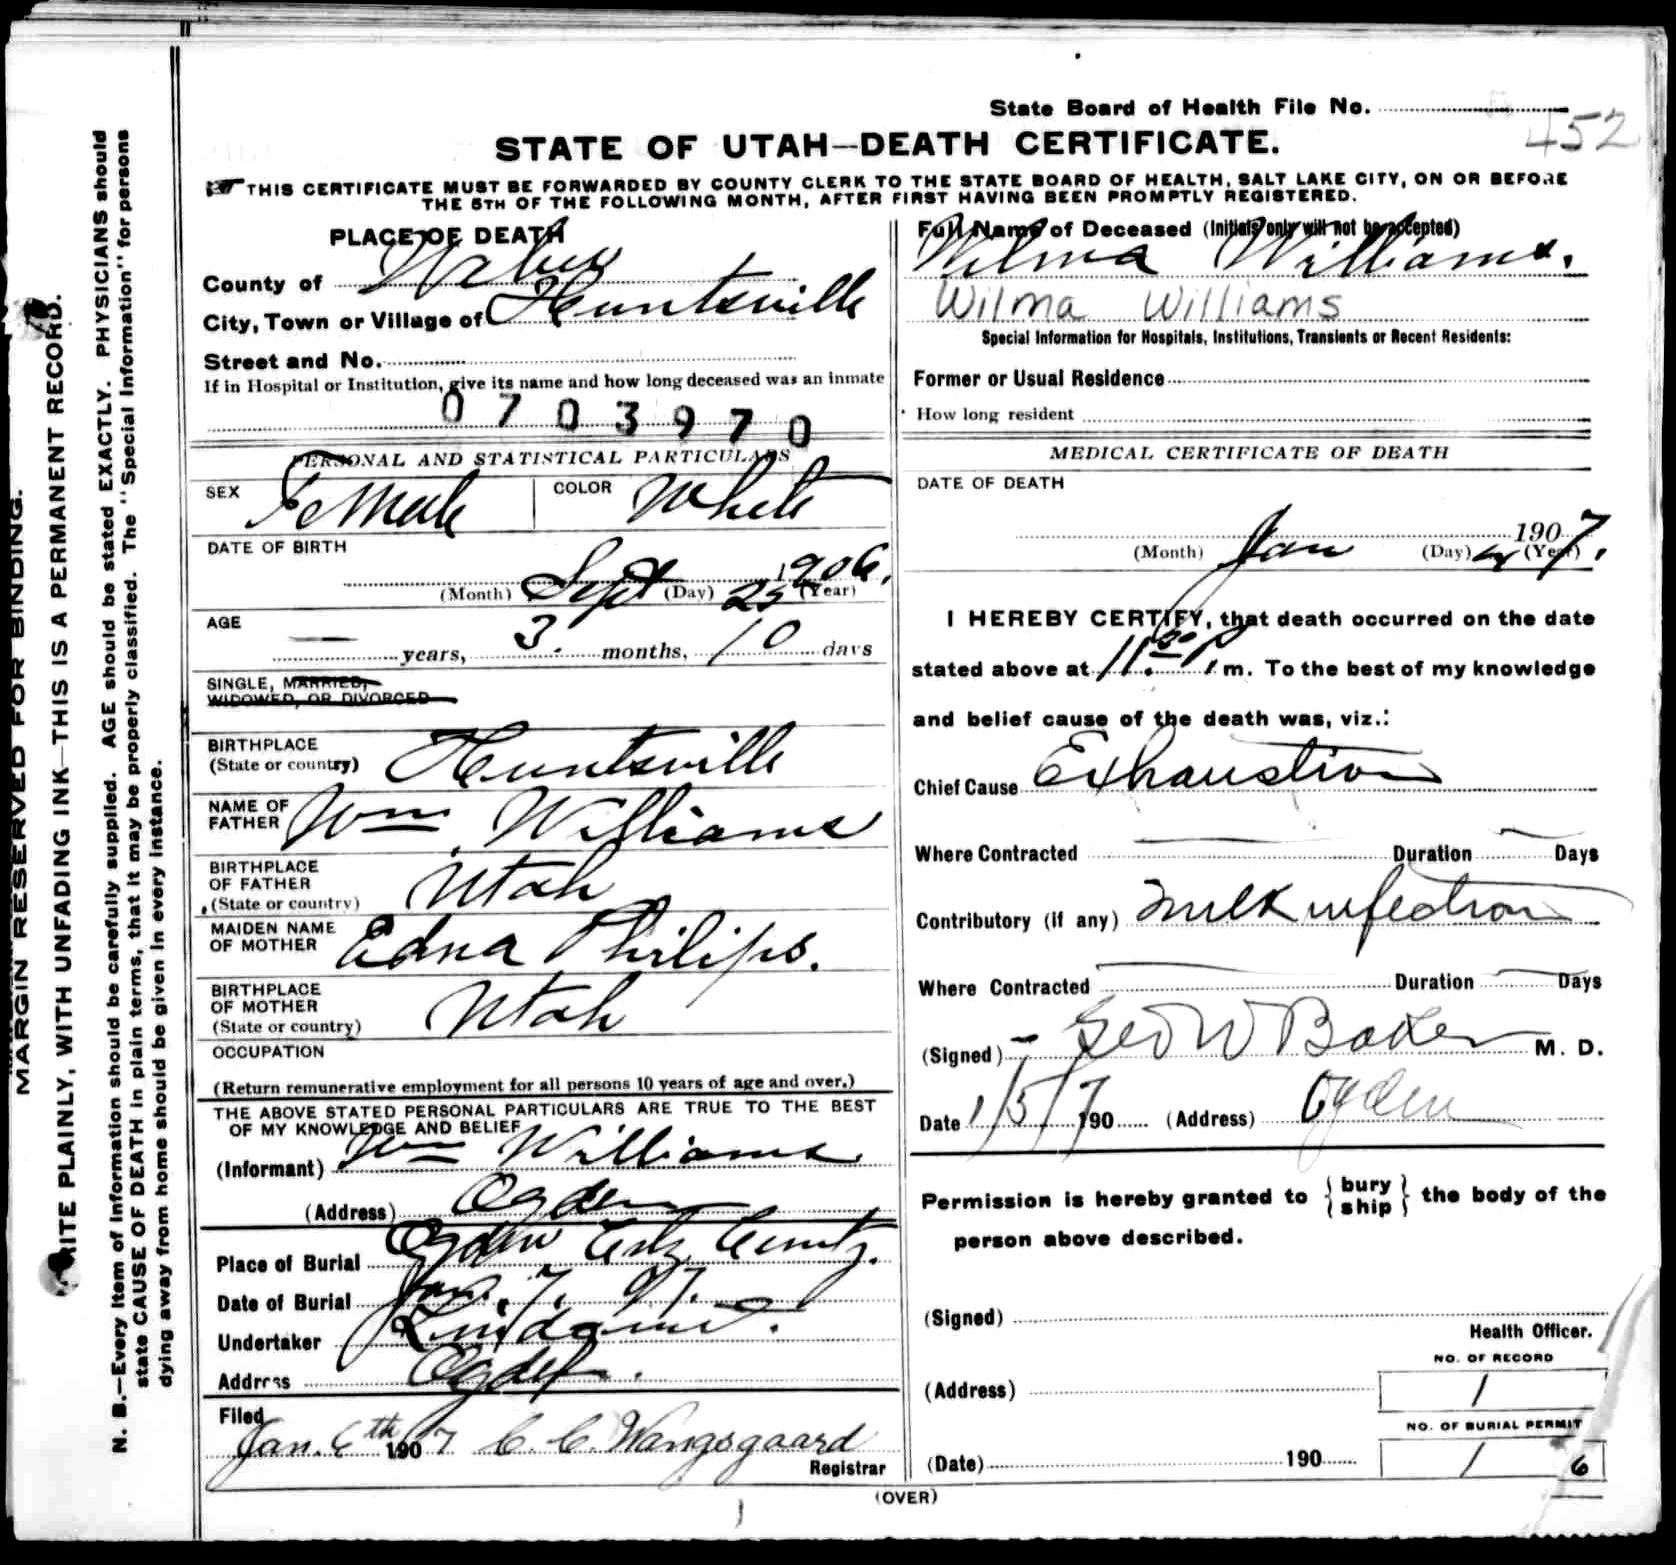 State Board of Health File No.
452
STATE OF UTAH—DEATH CERTIFICATE.
THIS CERTIFICATE MUST BE FORWARDED BY COUNTY CLERK TO THE STATE BOARD OF HEALTH, SALT LAKE CITY, ON OR BEFORE
THE 5TH OF THE FOLLOWING MONTH, AFTER FIRST HAVING BEEN PROMPTLY REGISTERED.
PLACE OF DEATH
County of Weber
City, Town or Village of Huntsville
Street and No.
If in Hospital or Institution, give its name and how long deceased was an inmate
0703970
PERSONAL AND STATISTICAL PARTICULARS
SEX Female COLOR White
DATE OF BIRTH
(Month) Sept (Day) 25 1906. (Year)
AGE
years, 3. months, 10 days
SINGLE, MARRIED,
WIDOWED, OR DIVORCED
BIRTHPLACE
(State or country) Huntsville
NAME OF
FATHER Wm Williams
BIRTHPLACE
OF FATHER
(State or country) Utah
MAIDEN NAME
OF MOTHER Edna Philips.
BIRTHPLACE
OF MOTHER
(State or country) Utah
OCCUPATION
(Return remunerative employment for all persons 10 years of age and over.)
THE ABOVE STATED PERSONAL PARTICULARS ARE TRUE TO THE BEST
OF MY KNOWLEDGE AND BELIEF
(Informant) Wm Williams
(Address) Ogden
Place of Burial Ogden City
Date of Burial Jan. 7. 07.
Undertaker
Address Ogden.
Filed
Jan. 6th 1907 C. C. Wangsgaard
Registrar
Full Name of Deceased (Initials only will not be accepted)
Wilma Williams.
Wilma Williams
Special Information for Hospitals, Institutions, Transients or Recent Residents:
Former or Usual Residence
How long resident
MEDICAL CERTIFICATE OF DEATH
DATE OF DEATH
1907.
(Month) Jan (Day) 4 (Year)
I HEREBY CERTIFY, that death occurred on the date
stated above at 11:30 P m. To the best of my knowledge
and belief cause of the death was, viz.:
Chief Cause Exhaustion
Where Contracted Duration Days
Contributory (if any) milk infection
Where Contracted Duration Days
(Signed) Geo W Baker M. D.
Date 1/5/7 190 (Address) Ogden
Permission is hereby granted to { bury
ship } the body of the
person above described.
(Signed)
Health Officer.
NO. OF RECORD
(Address) 1
NO. OF BURIAL PERMIT
(Date) 190 1 6
(OVER)
MARGIN RESERVED FOR BINDING.
WRITE PLAINLY, WITH UNFADING INK—THIS IS A PERMANENT RECORD.
N. B.—Every item of information should be carefully supplied. AGE should be stated EXACTLY. PHYSICIANS should
state CAUSE OF DEATH in plain terms, that it may be properly classified. The "Special Information" for persons
dying away from home should be given in every instance.